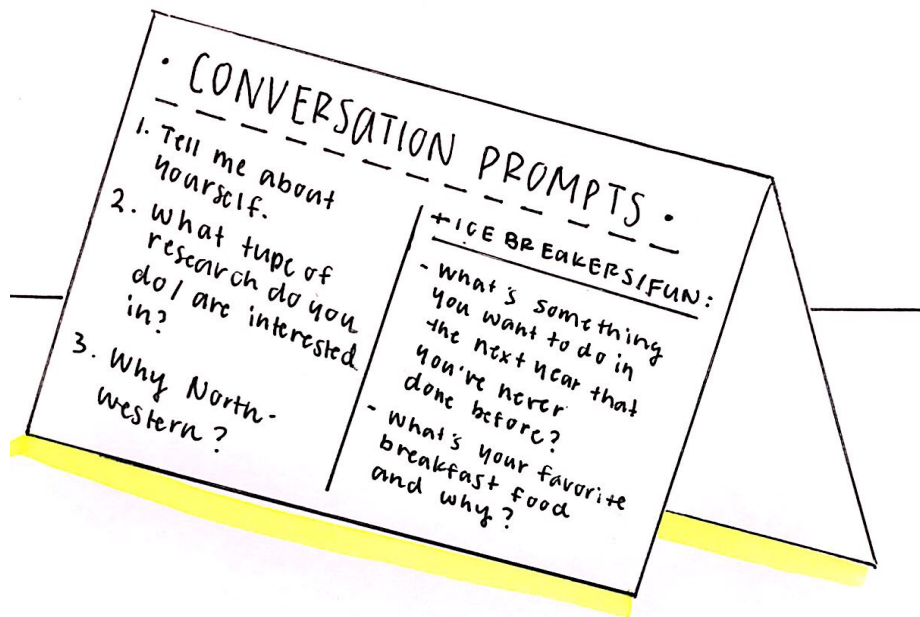 • CONVERSATION PROMPTS •
1. Tell me about
yourself.
2. What type of
research do you
do/are interested
in?
3. Why North-
western?
+ICE BREAKERS/FUN:
- What's something
you want to do in
the next year that
you've never
done before?
- What's your favorite
breakfast food
and why?